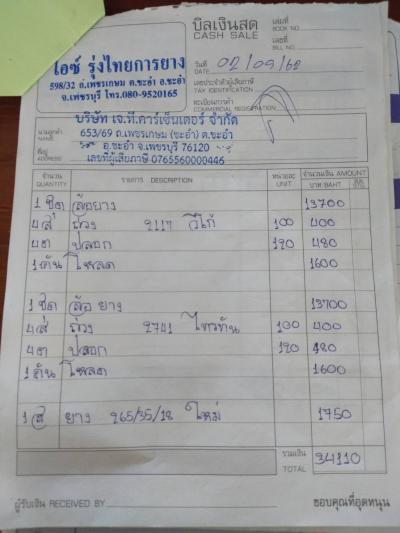 บิลเงินสด
CASH SALE
เล่มที่
BOOK NO.
เลขที่
BILL NO.
โอช รุ่งไทยการยาง
598/32 ถ.เพชรเกษม ต.ชะอำ อ.ชะอำ
จ.เพชรบุรี โทร.080-9520165
วันที่
DATE 02/09/62
เลขประจำตัวผู้เสียภาษี
TAX IDENTIFICATION
ทะเบียนการค้า
COMMERCIAL REGISTRATION
นามลูกค้า
NAME
บริษัท เจ.ที.คาร์เซ็นเตอร์ จำกัด
653/69 ถ.เพชรเกษม (ชะอำ) ต.ชะอำ
ที่อยู่
ADDRESS
อ.ชะอำ จ.เพชรบุรี 76120
เลขที่ผู้เสียภาษี 0765560000446
จำนวน รายการ DESCRIPTION หน่วยละ จำนวนเงิน AMOUNT
QUANTITY UNIT บาท BAHT
1 ชุด ล้อยาง 13700
4 ถ่วง 2117 วีโก้ 100 400
4 ปลอก 120 480
1 คัน โหลด 1600
1 ชุด ล้อ ยาง 13700
4 ถ่วง 2741 ไททัน 100 400
4 ปลอก 120 480
1 คัน โหลด 1600
1 ยาง 265/35/18 ใหม่ 1750
รวมเงิน
TOTAL 34110
ผู้รับเงิน RECEIVED BY
ขอบคุณที่อุดหนุน